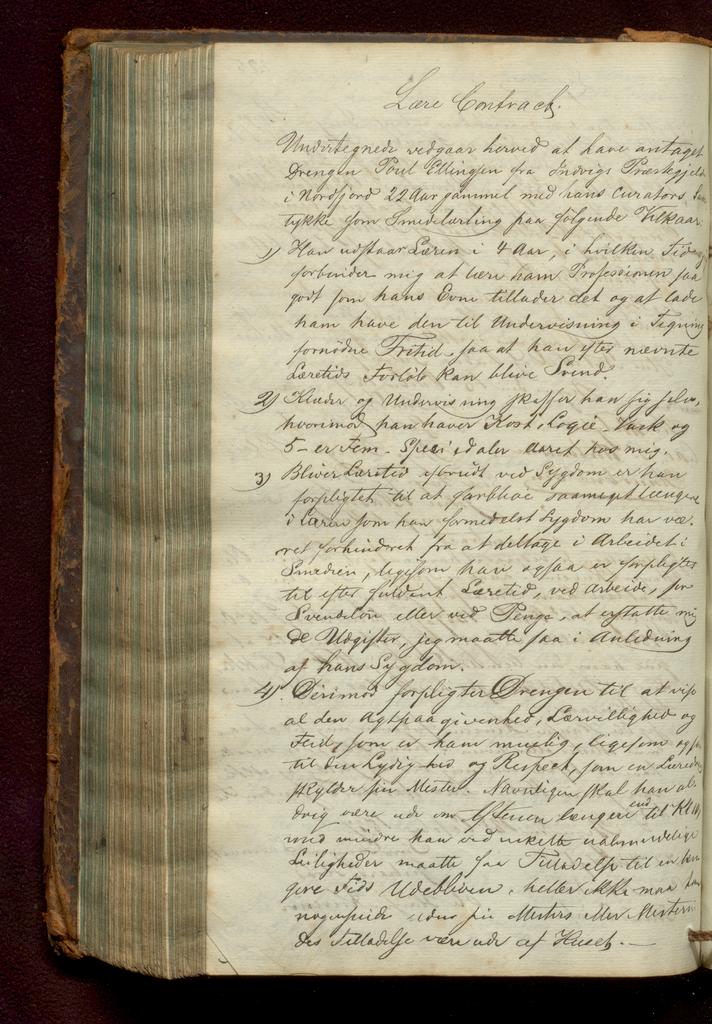 Lære Contract.
Undertegnede vedgaar herved at have antaget
Drengen Poul Ellingsen fra Indvigs Præstegjeld
i Nordfjord 22 Aar gammel med hans Curators Sam
tykke som Smedelærling paa følgende Vilkaar
1) Han udstaar Læren i 4 Aar, i hvilken Tid jeg
forbinder mig at lære ham Professionen saa
godt som hans Evne tillader det og at lade
ham have den til Undervisning i Tegning
fornødne Fritid, saa at han efter nævnte
Læretids Forløb kan blive Svend.
2) Klæder og Undervisning skaffer han sig selv,
hvorimod han haver Kost, Logie, Vask og
5 - er Fem - Speciedaler Aaret hos mig.
3) Bliver Læretid afbrudt ved Sygdom er han
forpligtet til at forblive saameget længere
i Læren som han formedelst Sygdom har væ-
ret forhindret fra at deltage i Arbeidet i
Smedien, ligesom han ogsaa er forpligtet
til efter fuldendt Læretid, ved Arbeide, for
Svendeløn eller ved Penge, at erstatte mig
de Udgifter, jeg maatte faa i Anledning
af hans Sygdom.
4) Derimod forpligter Drengen til at vise
al den Agtpaagivenhed, Lærvillighed og
Flid, som er ham muelig, ligesom ogsaa
til den Lydighed og Respect, som en Læredreng
skylder sin Mester. Navnligen skal han al-
drig være ude om Aftenen længere end til Kl 10
med mindre han ved enkelte ualmindelige
Leiligheder maatte faa Tilladelse til en læn
gere Tids Udebliven, heller ikke maa han
nogensinde uden sin Mesters eller Mesterin
des Tilladelse være ude af Huset. —